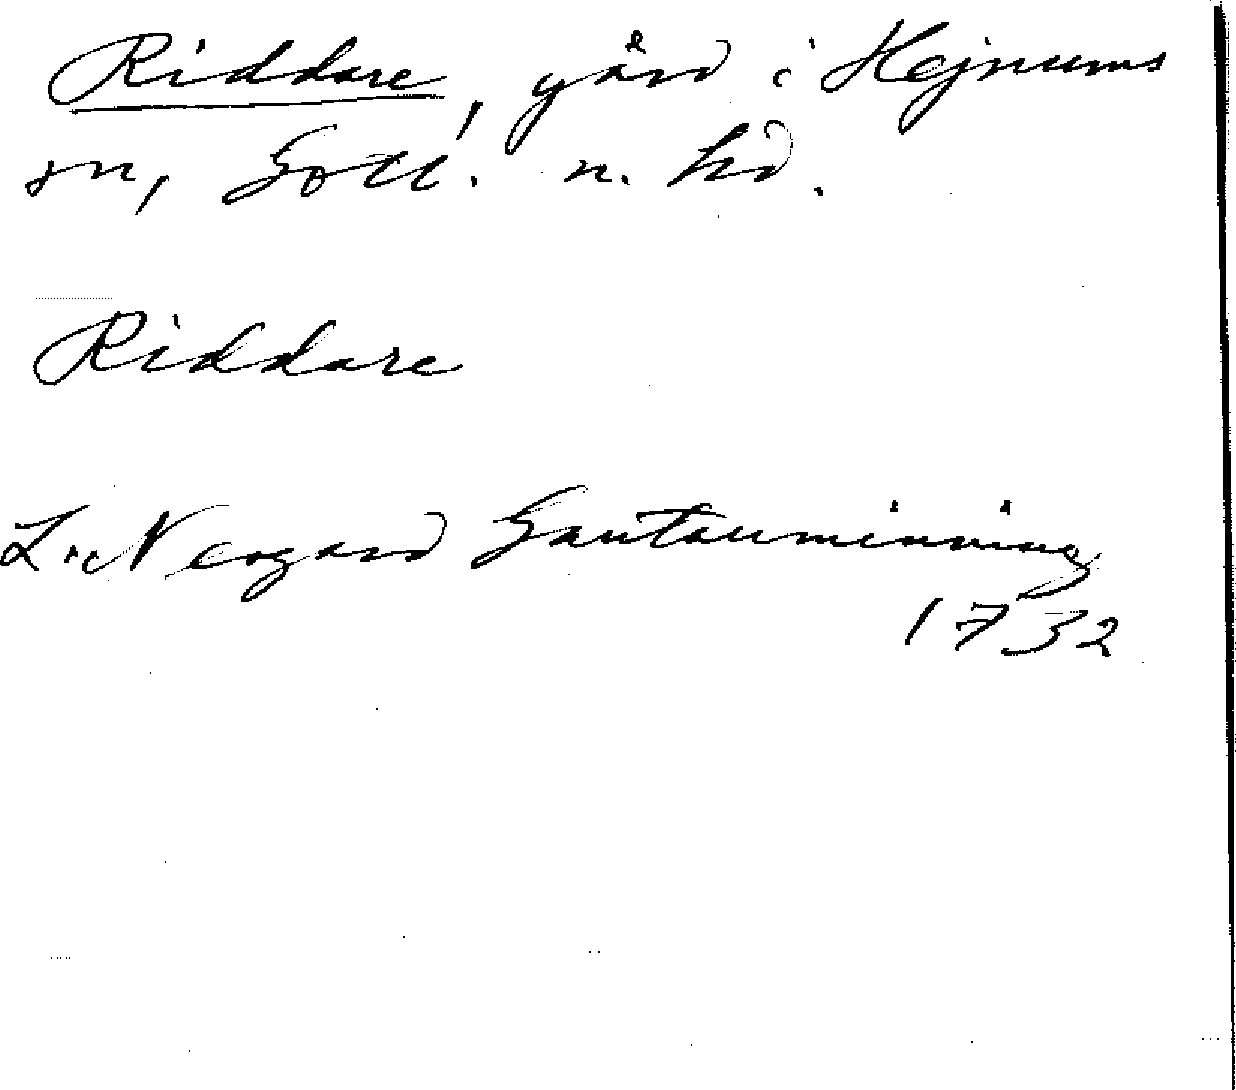 Riddare, gård i Hejnums
sn, Gotl. n. hd.
Riddare
L. Neogard Gautauminning
1732